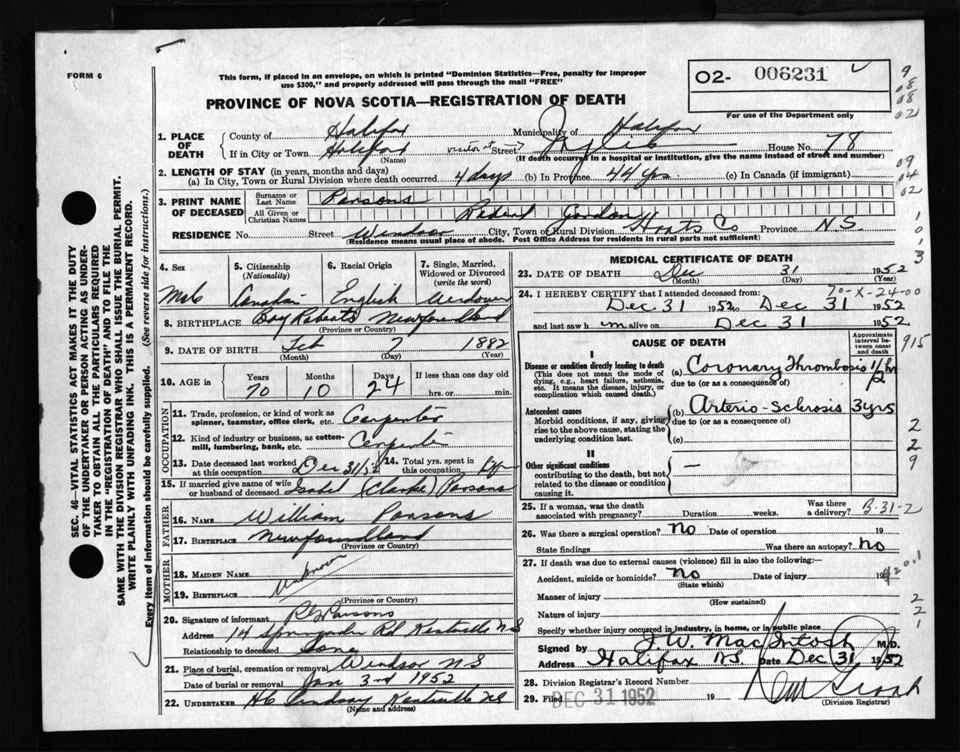 FORM 6
This form, if placed in an envelope, on which is printed "Dominion Statistics—Free, penalty for improper
use $300," and properly addressed will pass through the mail "FREE"
02- 006231
For use of the Department only
PROVINCE OF NOVA SCOTIA—REGISTRATION OF DEATH
1. PLACE OF DEATH
County of Halifax Municipality of Halifax
If in City or Town Halifax visitor at Street House No. 78
(Name) (If death occurred in a hospital or institution, give the name instead of street and number)
2. LENGTH OF STAY (in years, months and days)
(a) In City, Town or Rural Division where death occurred 4 days (b) In Province 44 yrs (c) In Canada (if immigrant)
3. PRINT NAME OF DECEASED
Surname or Last Name Parsons
All Given or Christian Names Gordon
RESIDENCE No. Street Windsor City, Town or Rural Division Hants Co Province N.S.
(Residence means usual place of abode. Post Office Address for residents in rural parts not sufficient)
SEC. 46—VITAL STATISTICS ACT MAKES IT THE DUTY
OF THE UNDERTAKER OR PERSON ACTING AS UNDER-
TAKER TO OBTAIN ALL THE PARTICULARS REQUIRED
IN THE "REGISTRATION OF DEATH" AND TO FILE THE
SAME WITH THE DIVISION REGISTRAR WHO SHALL ISSUE THE BURIAL PERMIT.
WRITE PLAINLY WITH UNFADING INK. THIS IS A PERMANENT RECORD.
Every item of information should be carefully supplied. (See reverse side for instructions.)
4. Sex
5. Citizenship (Nationality)
6. Racial Origin
7. Single, Married, Widowed or Divorced (write the word)
Male Canadian English Widower
8. BIRTHPLACE Bay Roberts Newfoundland
(Province or Country)
9. DATE OF BIRTH Feb 7 1882
(Month) (Day) (Year)
10. AGE in Years Months Days If less than one day old
70 10 24 hrs. or min.
OCCUPATION
11. Trade, profession, or kind of work as spinner, teamster, office clerk, etc. Carpenter
12. Kind of industry or business, as cotton-mill, lumbering, bank, etc.
13. Date deceased last worked at this occupation Dec 31/52
14. Total yrs. spent in this occupation
15. If married give name of wife or husband of deceased Isabel (Clarke) Parsons
FATHER
16. NAME William Parsons
17. BIRTHPLACE Newfoundland
(Province or Country)
MOTHER
18. MAIDEN NAME
19. BIRTHPLACE Unknown
(Province or Country)
20. Signature of informant Parsons
Address 14 Rd Kentville NS
Relationship to deceased Son
21. Place of burial, cremation or removal Windsor NS
Date of burial or removal Jan 3rd 1952
22. UNDERTAKER Lindsay Kentville NS
(Name and address)
MEDICAL CERTIFICATE OF DEATH
23. DATE OF DEATH Dec 31 1952
(Month) (Day) (Year)
70-X-24-00
24. I HEREBY CERTIFY that I attended deceased from:
Dec 31 1952 to Dec 31 1952
and last saw him alive on Dec 31 1952
CAUSE OF DEATH
Approximate interval between onset and death
I
Disease or condition directly leading to death
(This does not mean the mode of dying, e.g., heart failure, asthenia, etc. It means the disease, injury, or complication which caused death.)
(a) Coronary Thrombosis 1/2 hr
due to (or as a consequence of)
Antecedent causes
Morbid conditions, if any, giving rise to the above cause, stating the underlying condition last.
(b) Arterio-sclrosis 3 yrs
due to (or as a consequence of)
(c)
II
Other significant conditions
contributing to the death, but not related to the disease or condition causing it.
—
25. If a woman, was the death associated with pregnancy? Duration weeks. Was there a delivery? B-31-2
26. Was there a surgical operation? No Date of operation 19
State findings Was there an autopsy? No
27. If death was due to external causes (violence) fill in also the following:—
Accident, suicide or homicide? No Date of injury 19
(State which)
Manner of injury
(How sustained)
Nature of injury
Specify whether injury occurred in industry, in home, or in public place
Signed by J.W. MacIntosh M.D.
Address Halifax N.S. Date Dec 31 1952
28. Division Registrar's Record Number
29. Filed DEC 31 1952 19
(Division Registrar)